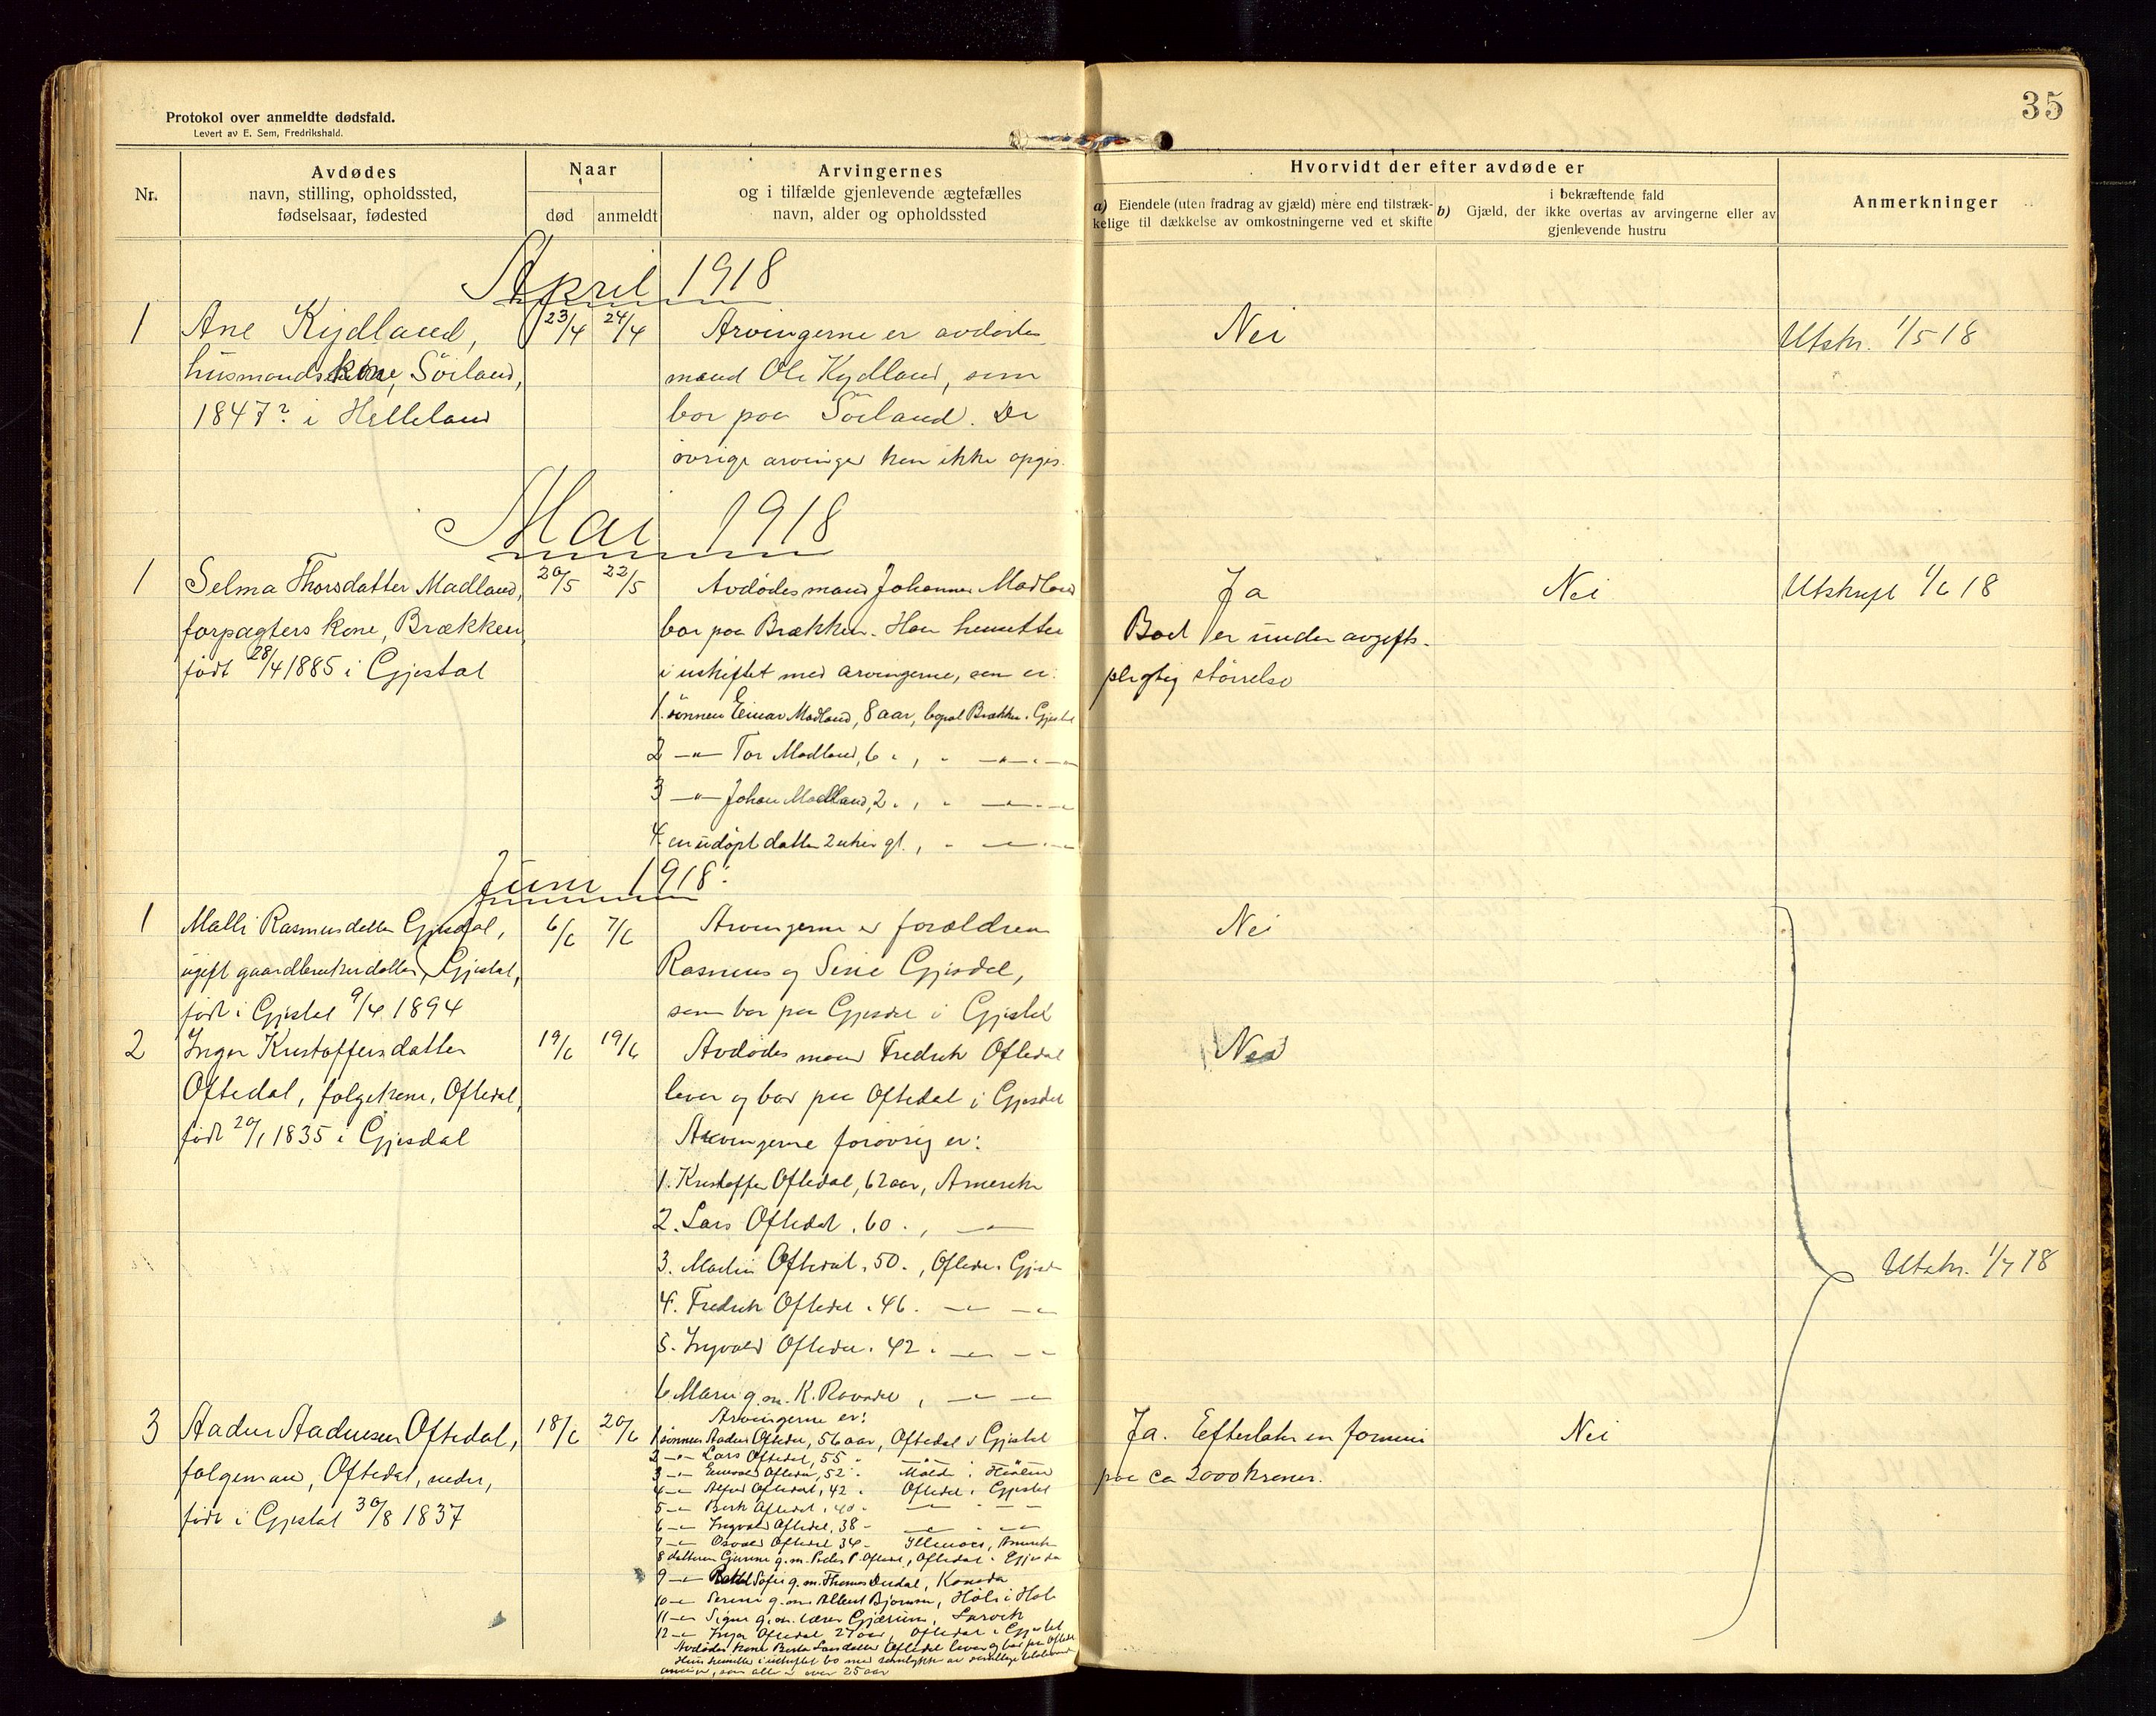 35
Protokol over anmeldte dødsfald.
Levert av E. Sem, Fredrikshald.
Nr.
Avdødes
navn, stilling, opholdssted,
fødselsaar, fødested
Naar
død
anmeldt
Arvingernes
og i tilfælde gjenlevende ægtefælles
navn, alder og opholdssted
Hvorvidt der efter avdøde er
a) Eiendele (uten fradrag av gjæld) mere end tilstræk-
kelige til dækkelse av omkostningerne ved et skifte
i bekræftende fald
b) Gjæld, der ikke overtas av arvingerne eller av
gjenlevende hustru
Anmerkninger
April 1918
1
Ane Kydland,
husmandskone, Sörland,
1847? i Helleland
23/4
24/4
Arvingerne er avdødes
mand Ole Kydland, som
bor paa Sörland. De
övrige arvinger kan ikke opgis.
Nei
Utskr. 1/5 18
Mai 1918
1
Selma Thorsdatter Madland,
forpagters kone, Brækken
født 28/4 1885 i Gjestal
20/5
22/5
Avdødes mand Johannes Madland
bor paa Brækken. Han hensitter
i uskiftet med arvingerne, som er:
1. sønnen Einar Madland, 8 aar, bopæl Brækken i Gjestal
2 —"— Tor Madland, 6 " , " —"—
3 —"— Johan Madland, 2 " , " —"—
4. en udöpt datter 2 uker gl. , " —"—
Ja
Boet er under avgifts-
pligtig störrelse
Nei
Utskrift 1/6 18
Juni 1918.
1
Malli Rasmusdatter Gjesdal,
ugift gaardbrukerdatter, Gjestal,
født i Gjestal 9/4 1894
6/6
7/6
Arvingerne er forældrene
Rasmus og Sine Gjesdal,
som bor paa Gjesdal i Gjestal
Nei
2
Inger Kristoffersdatter
Oftedal, folgekone, Oftedal,
født 20/1 1835 i Gjesdal
19/6
19/6
Avdødes mand Fredrik Oftedal
lever og bor paa Oftedal i Gjesdal
Arvingerne forøvrig er:
1. Kristoffer Oftedal, 62 aar, Amerika
2. Lars Oftedal, 60 " , —"—
3. Martin Oftedal, 50 " , Oftedal i Gjesdal
4. Fredrik Oftedal, 46 " —"— —"—
5. Ingvald Oftedal, 42 " —"— —"—
6. Marie g. m. K. , —"— —"—
Nei
Utskr. 1/7 18
3
Aadne Aadnesen Oftedal,
folgemand, Oftedal, nedre,
født i Gjestal 30/8 1837
18/6
20/6
Arvingerne er:
1 sønnen Aadne Oftedal, 56 aar, Oftedal i Gjestal
2 —"— Lars Oftedal, 55 "
3 —"— Oftedal, 52 "
4 —"— Alfred Oftedal, 42 " Oftedal i Gjestal
5 —"— Oftedal, 40 " —"— —"—
6 —"— Ingvald Oftedal, 38 " —"— —"—
7 —"— Osvald Oftedal 34 " Illinois, Amerika
8 datteren g. m. Peder P. Oftedal, Oftedal i Gjesdal
9 —"— Sofie g. m. Thomas Dirdal, Kanada
10 —"— Serine g. m. Albert Bjørnsen, Høle i Høle
11 —"— Signe g. m. lærer Gjærum, Larvik
12 —"— Inga Oftedal 27 aar, Oftedal i Gjestal
Avdødes kone Berta Larsdatter Oftedal lever og bor paa Oftedal
Hun hensitter i uskiftet bo med samtykke av samtlige
arvinger, som alle er over 25 aar
Ja. Efterlater en formue
paa ca 2000 kroner.
Nei